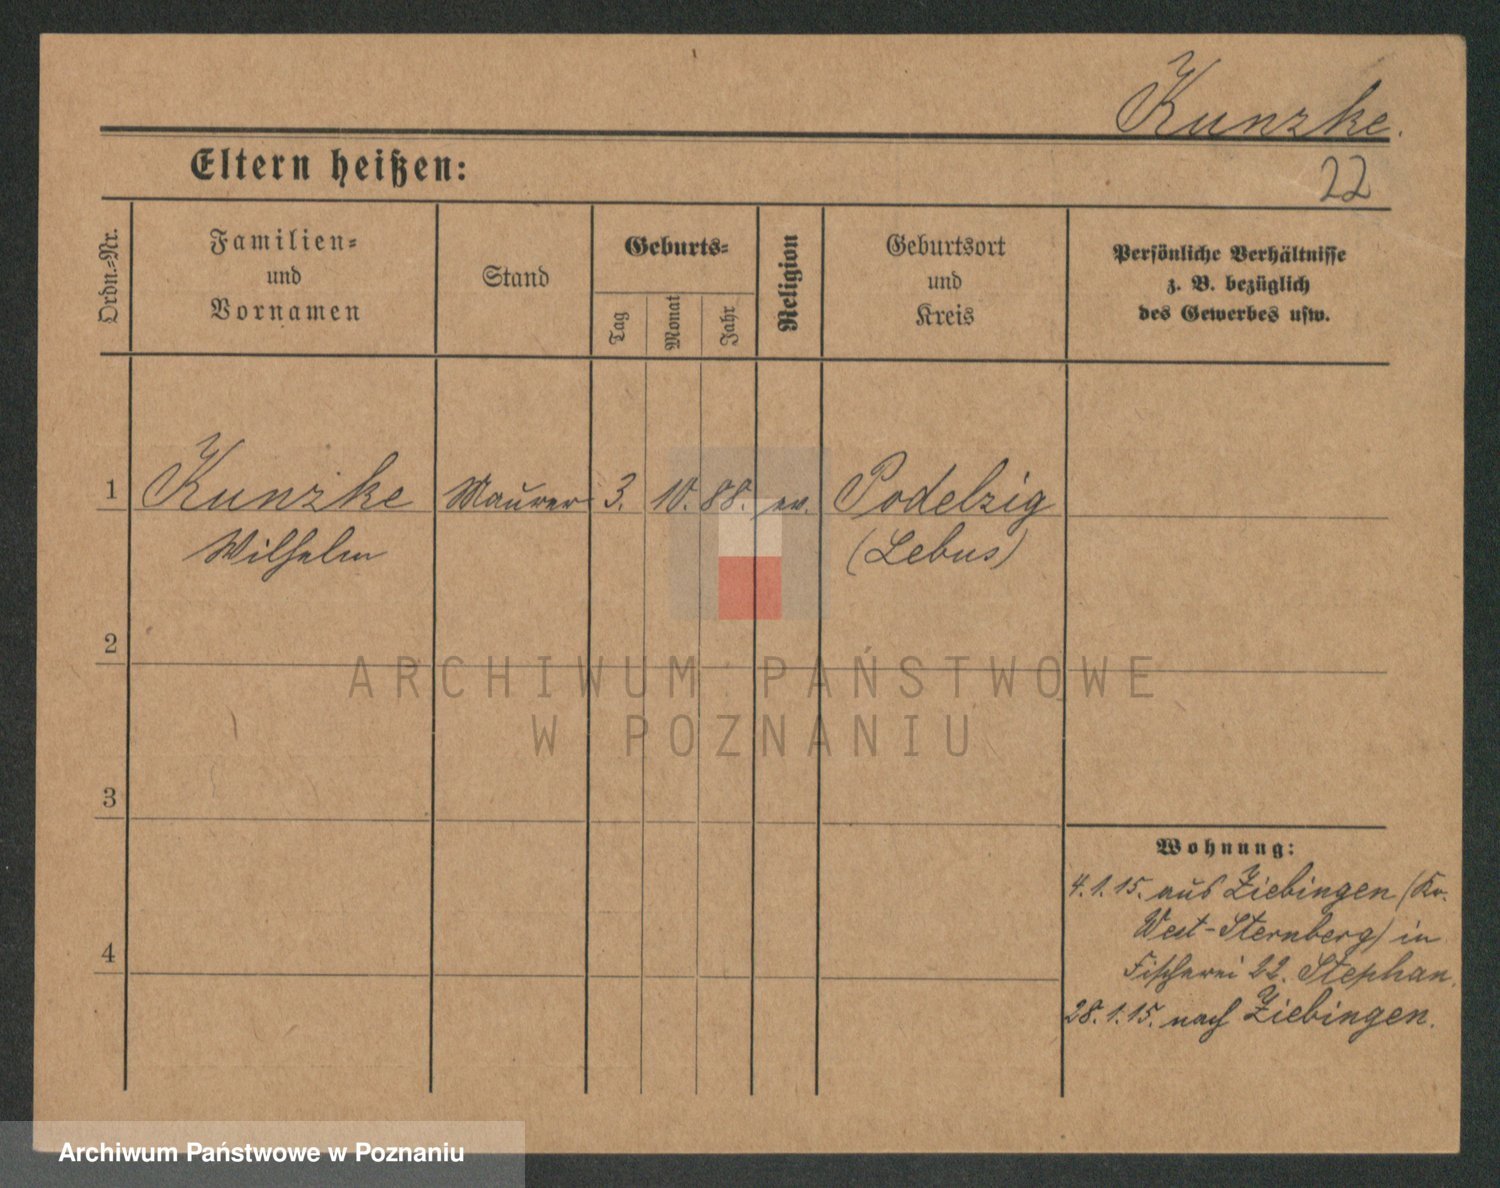 Kunzke.
Eltern heißen:
22
Ordn.-Nr.
Familien-
und
Vornamen
Stand
Geburts-
Tag
Monat
Jahr
Religion
Geburtsort
und
Kreis
Persönliche Verhältnisse
z. B. bezüglich
des Gewerbes usw.
1 Kunzke Maurer 3. 10. 88. ev. Podelzig
Wilhelm (Lebus)
2
ARCHIWUM PAŃSTWOWE
W POZNANIU
3
Wohnung:
4.1.15. aus Ziebingen (Kr.
West-Sternberg) in
4
Fischerei 22. Stephan.
28.1.15. nach Ziebingen.
Archiwum Państwowe w Poznaniu